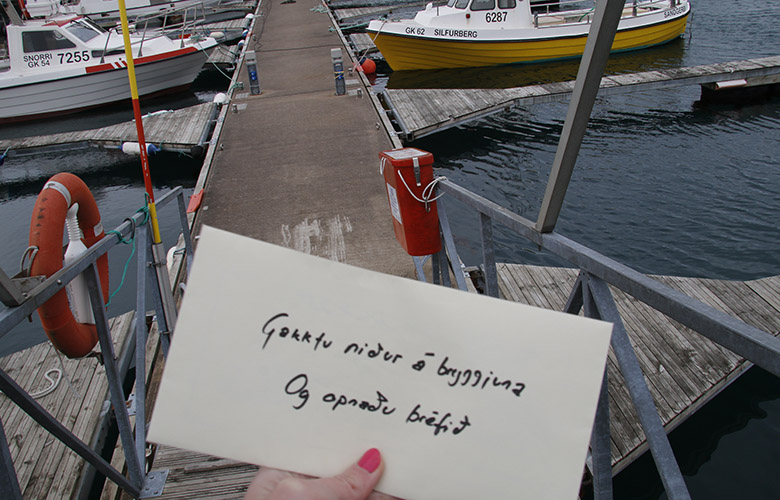 6287
GK 62 SILFURBERG
SNORRI
GK 54 7255
Gakktu niður á bryggjuna
Og opnaðu bréfið